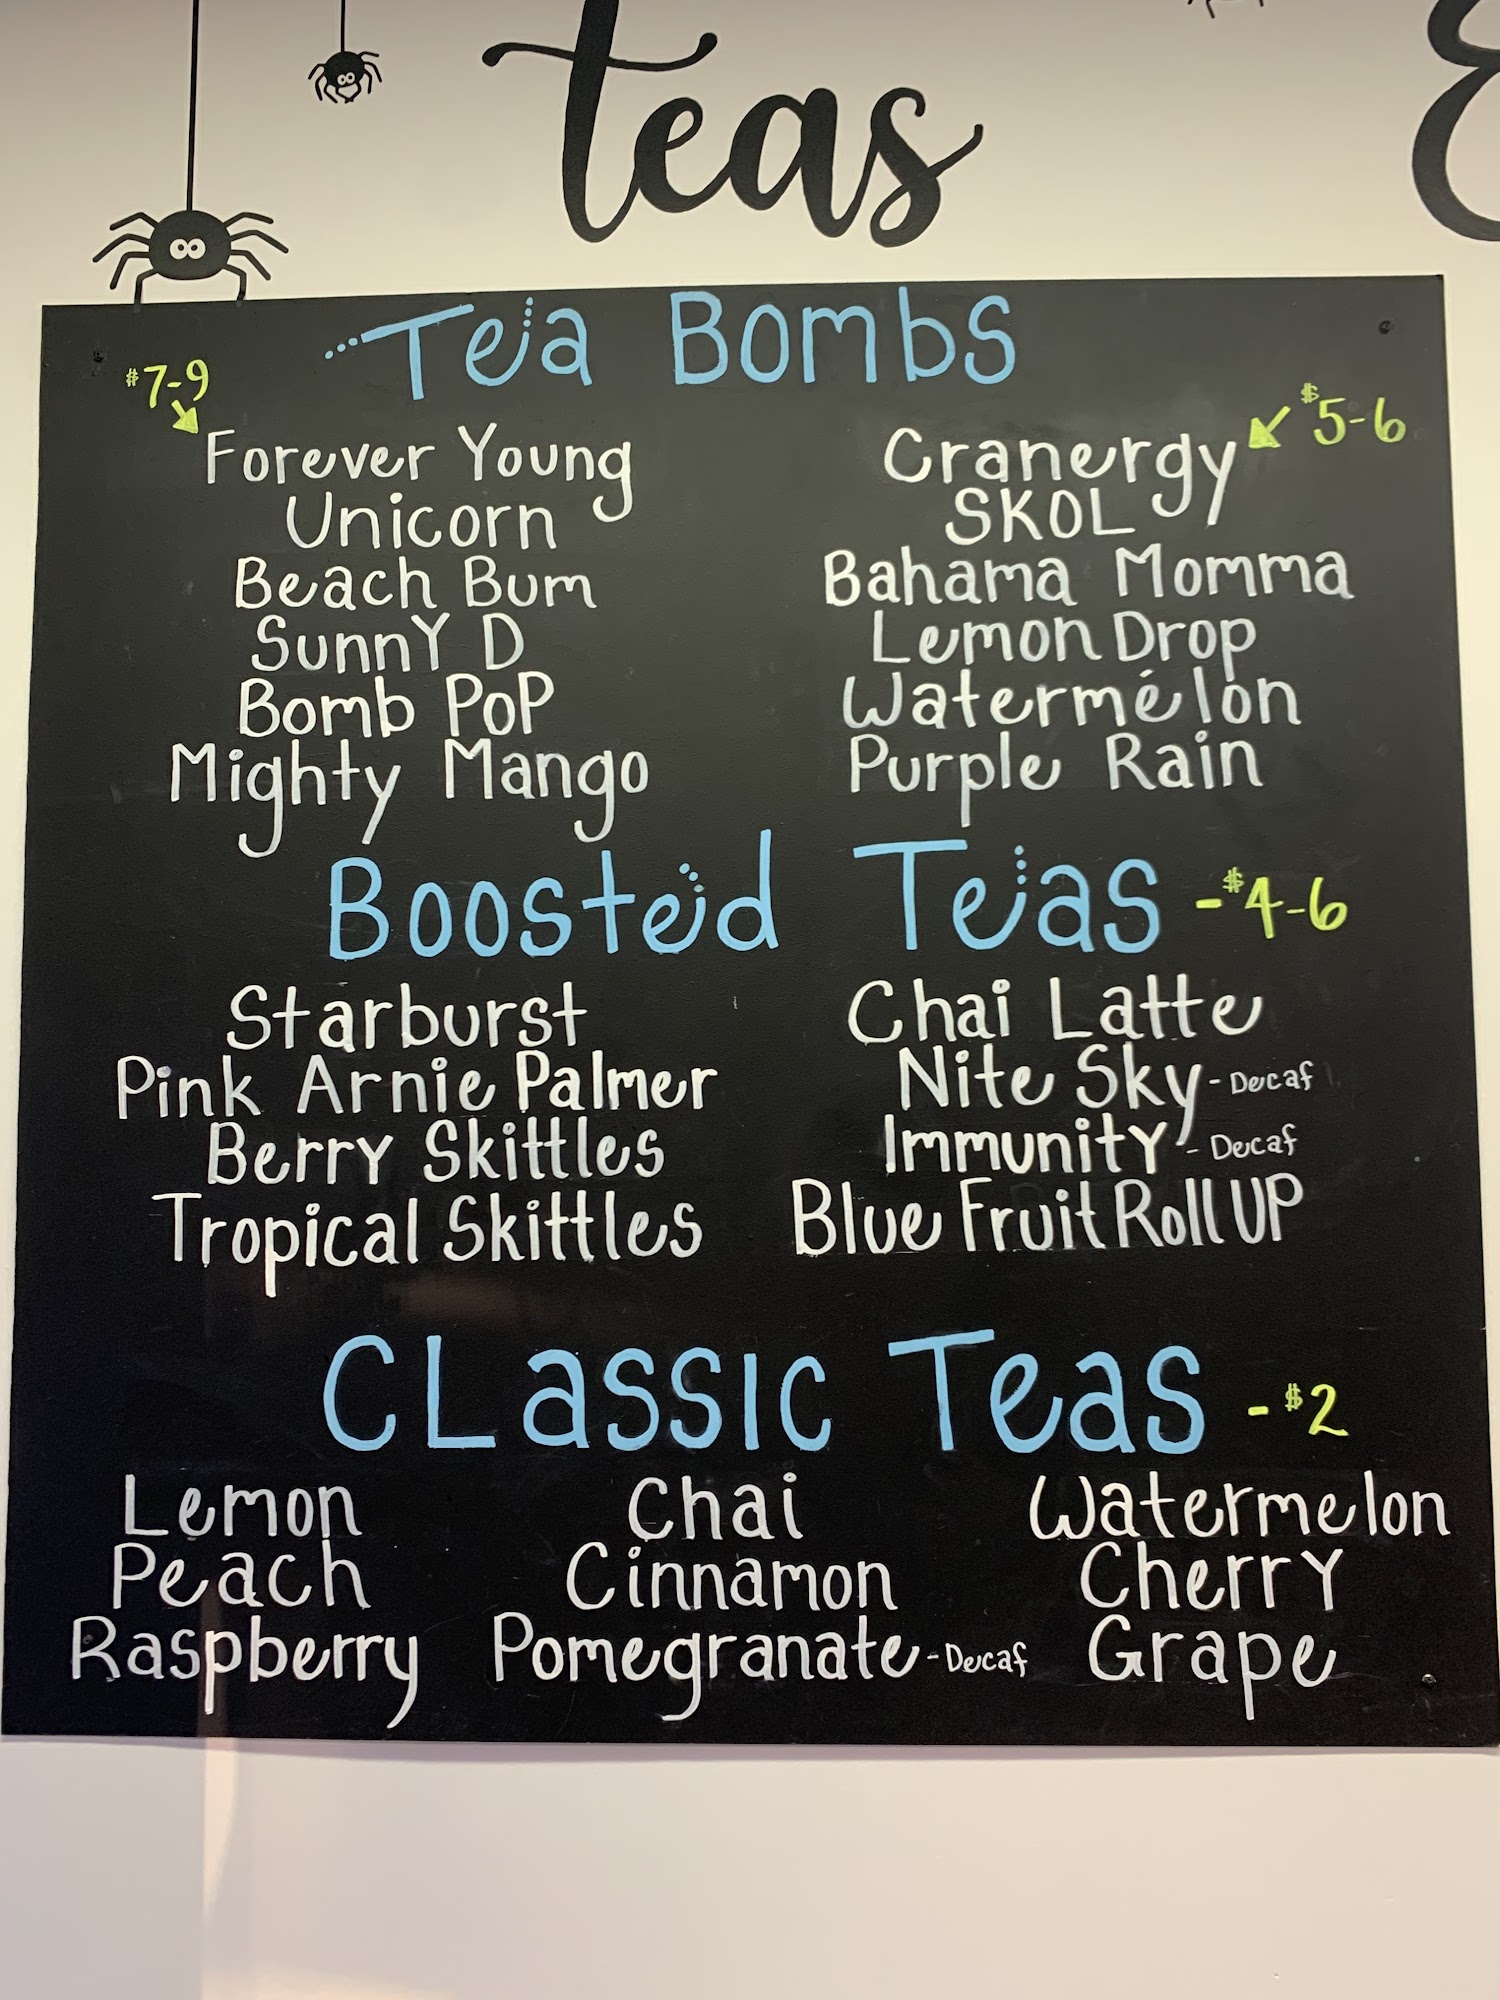 teas
Tea Bombs
$7-9
$5-6
Forever Young
Unicorn
Beach Bum
SunnY D
Bomb PoP
Mighty Mango
Cranergy
SKOL
Bahama Momma
Lemon Drop
Watermelon
Purple Rain
Boosted Teas - $4-6
Starburst
Pink Arnie Palmer
Berry Skittles
Tropical Skittles
Chai Latte
Nite Sky - Decaf
Immunity - Decaf
Blue Fruit Roll UP
CLassic Teas - $2
Lemon
Peach
Raspberry
Chai
Cinnamon
Pomegranate - Decaf
Watermelon
Cherry
Grape